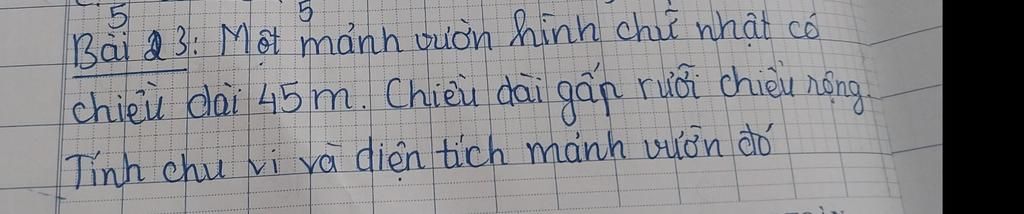 5 5
Bài 3: Một mảnh vườn hình chữ nhật có
chiều dài 45m. Chiều dài gấp rưỡi chiều rộng.
Tính chu vi và diện tích mảnh vườn đó